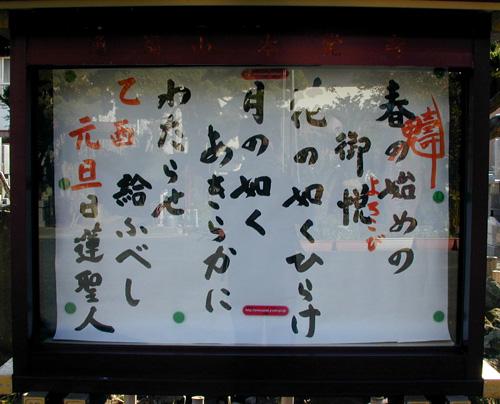 春の始めの
御悦
よろこび
花の如くひらけ
月の如く
あきらかに
わたらせ
給ふべし
乙酉
元旦
日蓮聖人